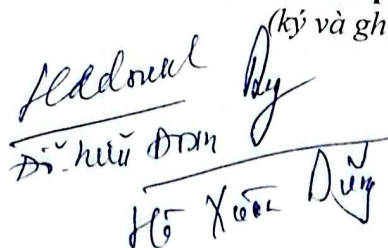 (ký và gh
Đỗ hữu Đoan
Hồ Xuân Dũng